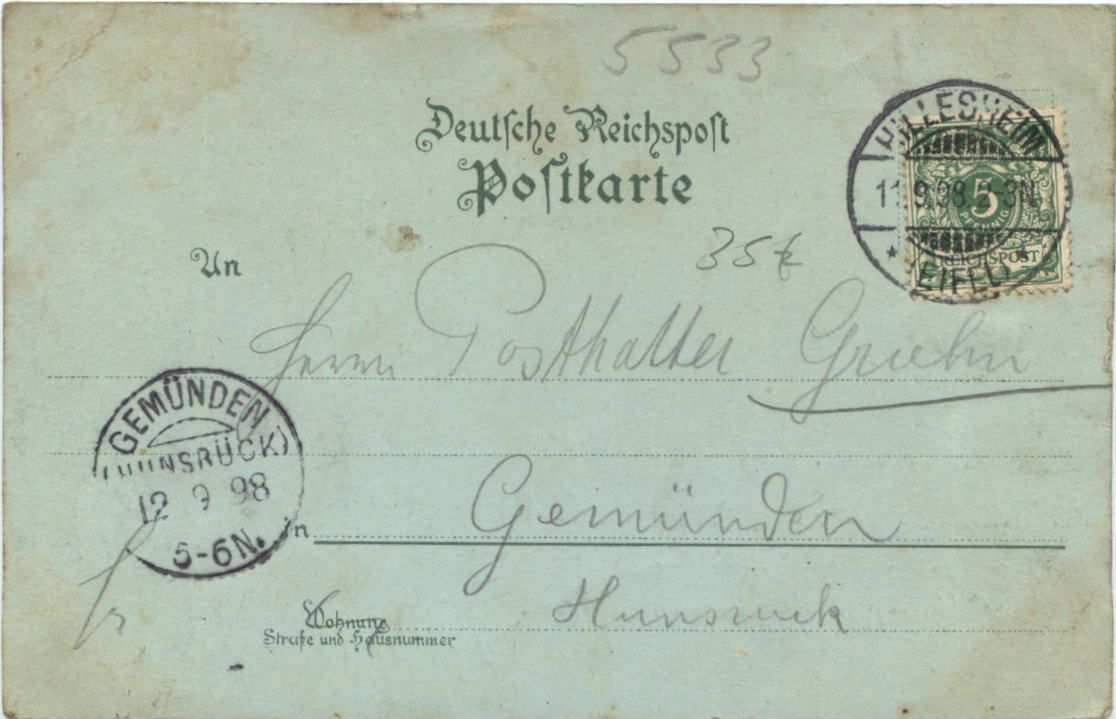 5533
Deutsche Reichspost
Postkarte
HILLESHEIM
11.9.98.2-3N.
* (EIFEL) *
5
PFENNIG
REICHSPOST
35
An
Herrn Posthalter
GEMÜNDEN
(HUNSRÜCK)
12 9 98
5-6N.
in Gemünden
Hunsrück
Wohnung
Straße und Hausnummer